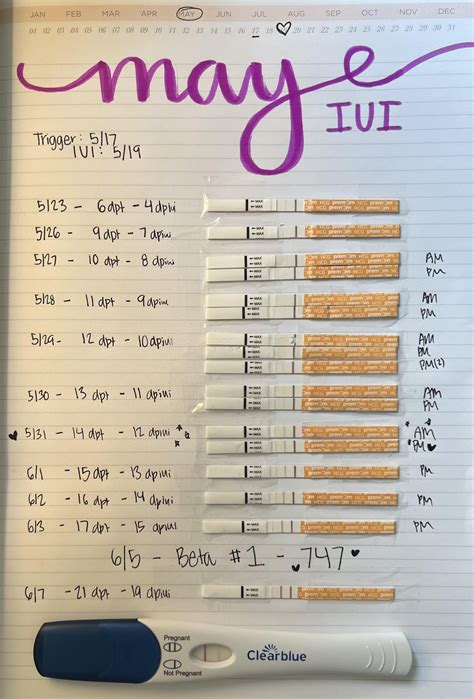 JAN FEB MAR APR MAY JUN JUL AUG SEP OCT NOV DEC
01 02 03 04 05 06 07 08 09 10 11 12 13 14 15 16 17 18 19 20 21 22 23 24 25 26 27 28 29 30 31
may
IUI
Trigger: 5/17
IUI: 5/19
5/23 - 6 dpt - 4 dpiui
5/26 - 9 dpt - 7 dpiui
5/27 - 10 dpt - 8 dpiui AM
PM
5/28 - 11 dpt - 9 dpiui AM
PM
5/29 - 12 dpt - 10 dpiui AM
PM
PM(2)
5/30 - 13 dpt - 11 dpiui AM
PM
5/31 - 14 dpt - 12 dpiui AM
PM
6/1 - 15 dpt - 13 dpiui PM
6/2 - 16 dpt - 14 dpiui PM
6/3 - 17 dpt - 15 dpiui PM
6/5 - Beta #1 - 747
6/7 - 21 dpt - 19 dpiui
Pregnant
Not Pregnant
Clearblue